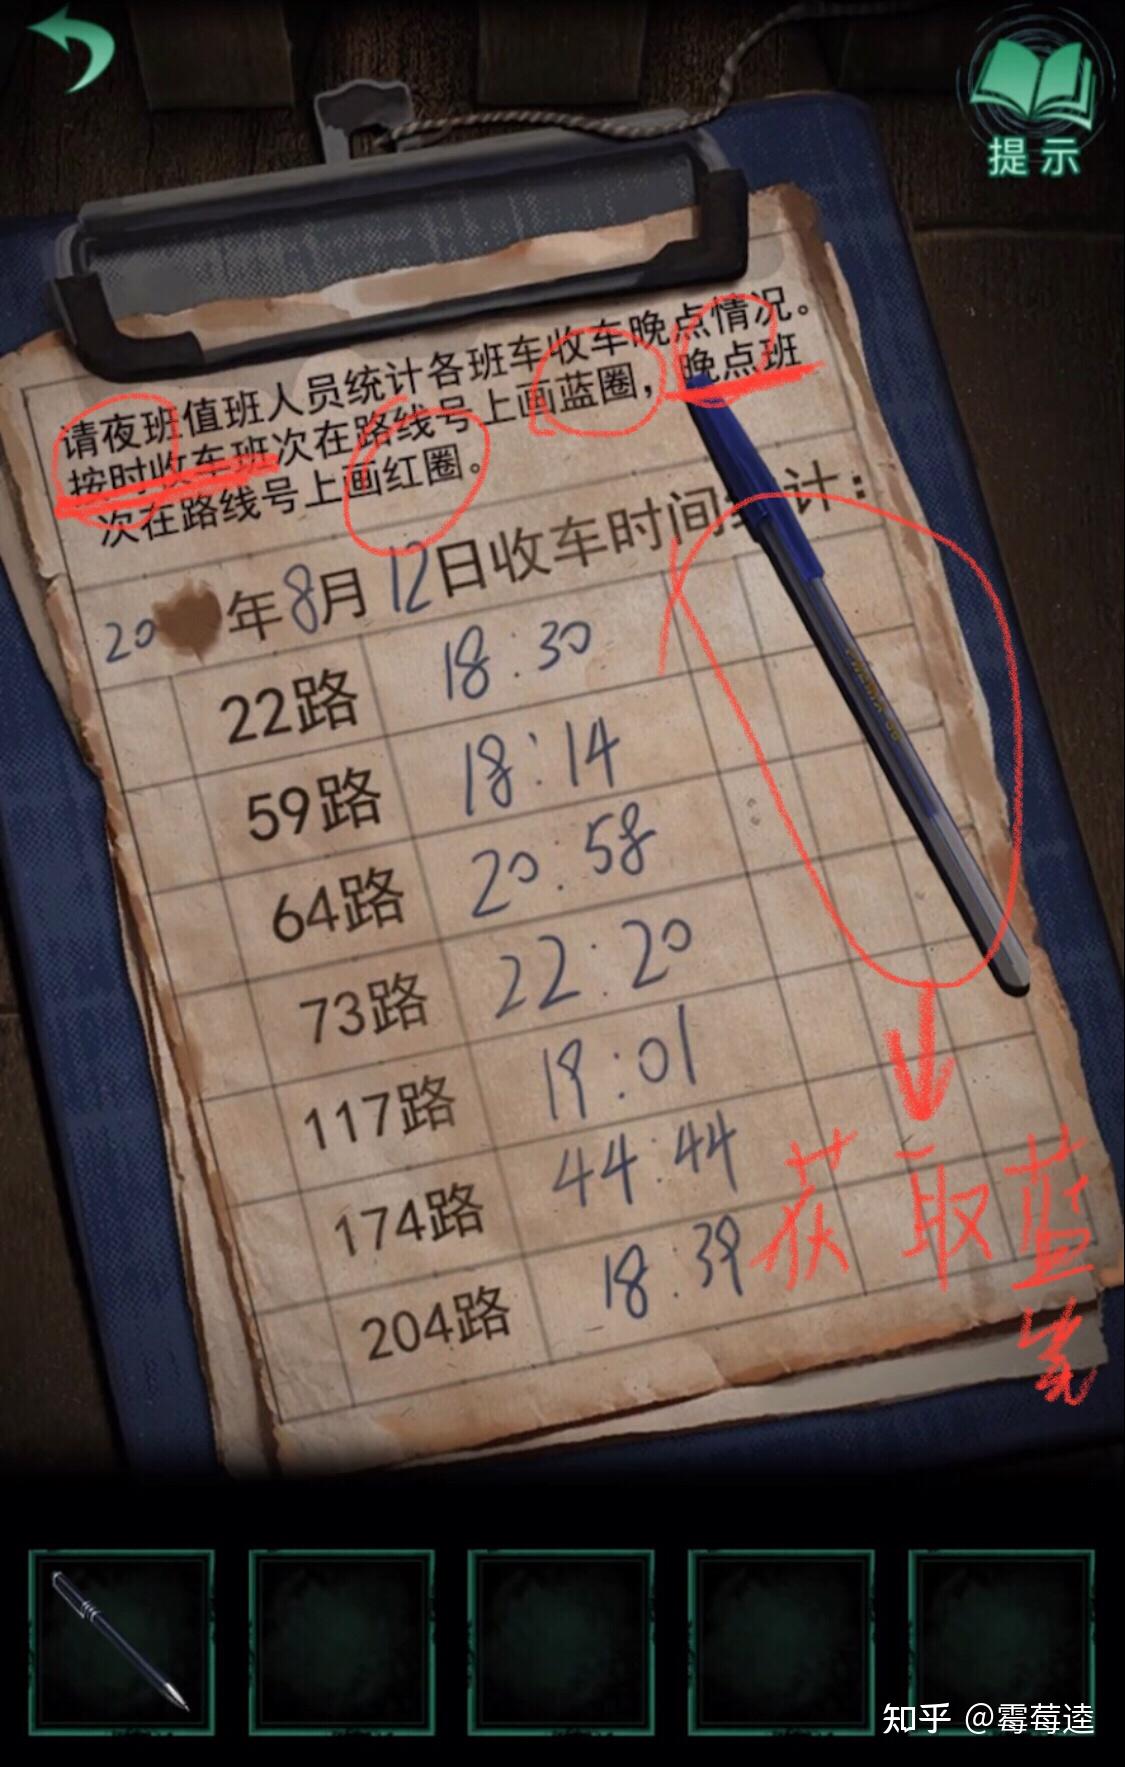 提示
请夜班值班人员统计各班车收车晚点情况。
按时收车班次在路线号上画蓝圈，晚点班
次在路线号上画红圈。
20 年8月12日收车时间 计：
22路 18:30
59路 18:14
64路 20:58
73路 22:20
117路 19:01
174路 44:44
204路 18:39
获取蓝
笔
知乎 @霉莓逵